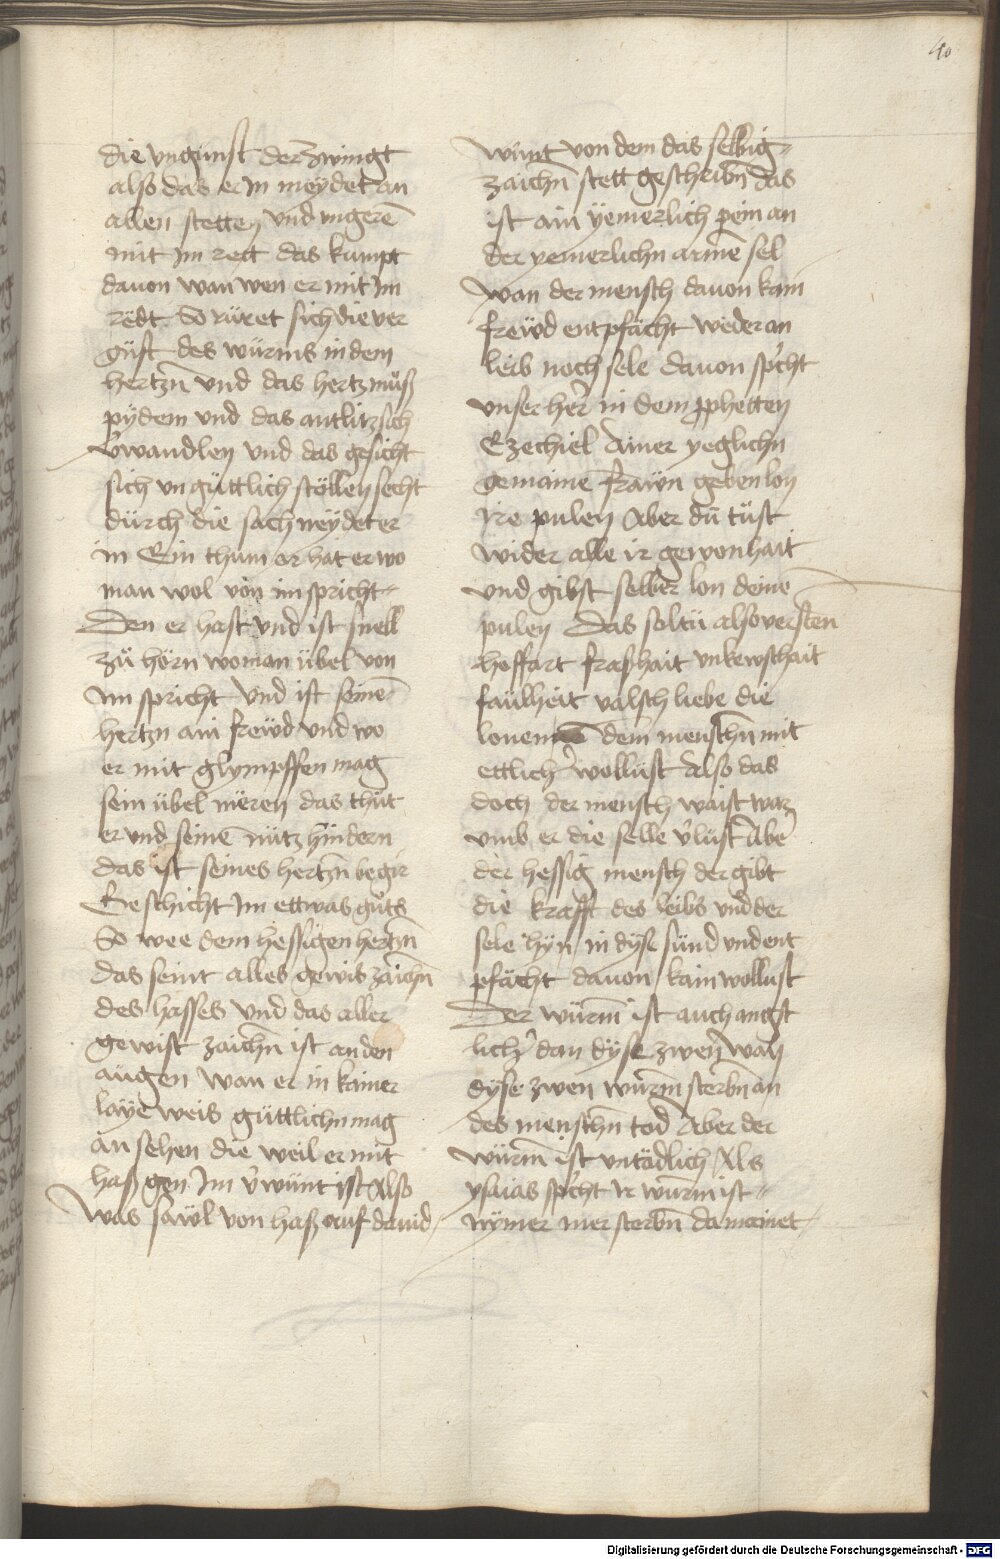 40
die vngunst der zwingt
also das er in meÿdet an
allen stetten vnd vngeren̄
mit Im rett das kumpt
dauon wan wen er mit Im
rëdt So rüret sich die ver
güft des würms in dem
hertzn̄ vnd das hertz müß
pÿdem vnd das antlitz sich
v̓wandlen vnd das gesicht
sich vn güttlich stöllen secht
dürch die sach neÿdet er
in Ein thum er hat er wo
man wol von im spricht
Den er hast vnd ist snell
zü hörn wo man übel von
im spricht vnd ist seinē
hertzn ain frewd vnd wo
er mit glympffen mag
sein übel meren das thüt
er vnd seinē nütz hindern
das ist seines hertzn̄ begir
Geschicht Im ettwas güts
So wee dem hessigen hertzn̄
das seint alles gewis zaichn̄
des hasses vnd das aller
gewist zaichn̄ ist an den
augen wan er in kainer
laÿe weis güttlichn mag
an sehen die weil er mit
haß gen Im v̓wünt ist Also
was sawl von haß auf dauid
wünt von dem das selbig
zaichn̄ stett geschribn̄ das
ist ain ÿemerlich pein an
der yemerlichn armē sel
wan der mensch dauon kain
frewd entpfächt weder an
leib noch sele dauon sp̓cht
vnser her̓ in dem ꝓphetten
Ezechiel Ainer yeglichn
gemainē frawn geben lon
ire pulen Aber dü tüst
wider alle ir gewonhait
vnd gibst selber lon deinē
pulen Das soltu also versten
hoffart fraßhait vnkewschait
faülheit valsch liebe die
lonen dem menschn̄ mit
ettlich̓ wollüst Also das
doch der mensch waist waz
vmb er die selle v̓lüst Aber
der hessig mensch der gibt
die krafft des leibs vnd der
sele hÿn in dÿse sünd vnd ent
pfächt dauon kain wollust
Der würm̄ ist auch angst
lich̓ dan dÿse zwen wan
dÿse zwen würm̄ sterbn̄ an
des menschn̄ tod Aber der
würm̄ ist vntödlich Als
ysaias sp̓cht Ir würm̄ ist
nÿmer mer sterbn̄ da mainet
Digitalisierung gefördert durch die Deutsche Forschungsgemeinschaft - DFG